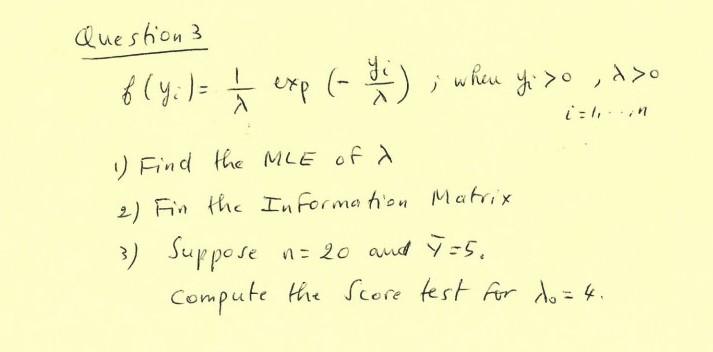 Question 3
f(yi)= 1/λ exp (- yi/λ) ; when yi >0 , λ>0
i=1,...,n
1) Find the MLE of λ
2) Fin the Information Matrix
3) Suppose n= 20 and Ȳ=5.
Compute the Score test for λ0= 4.